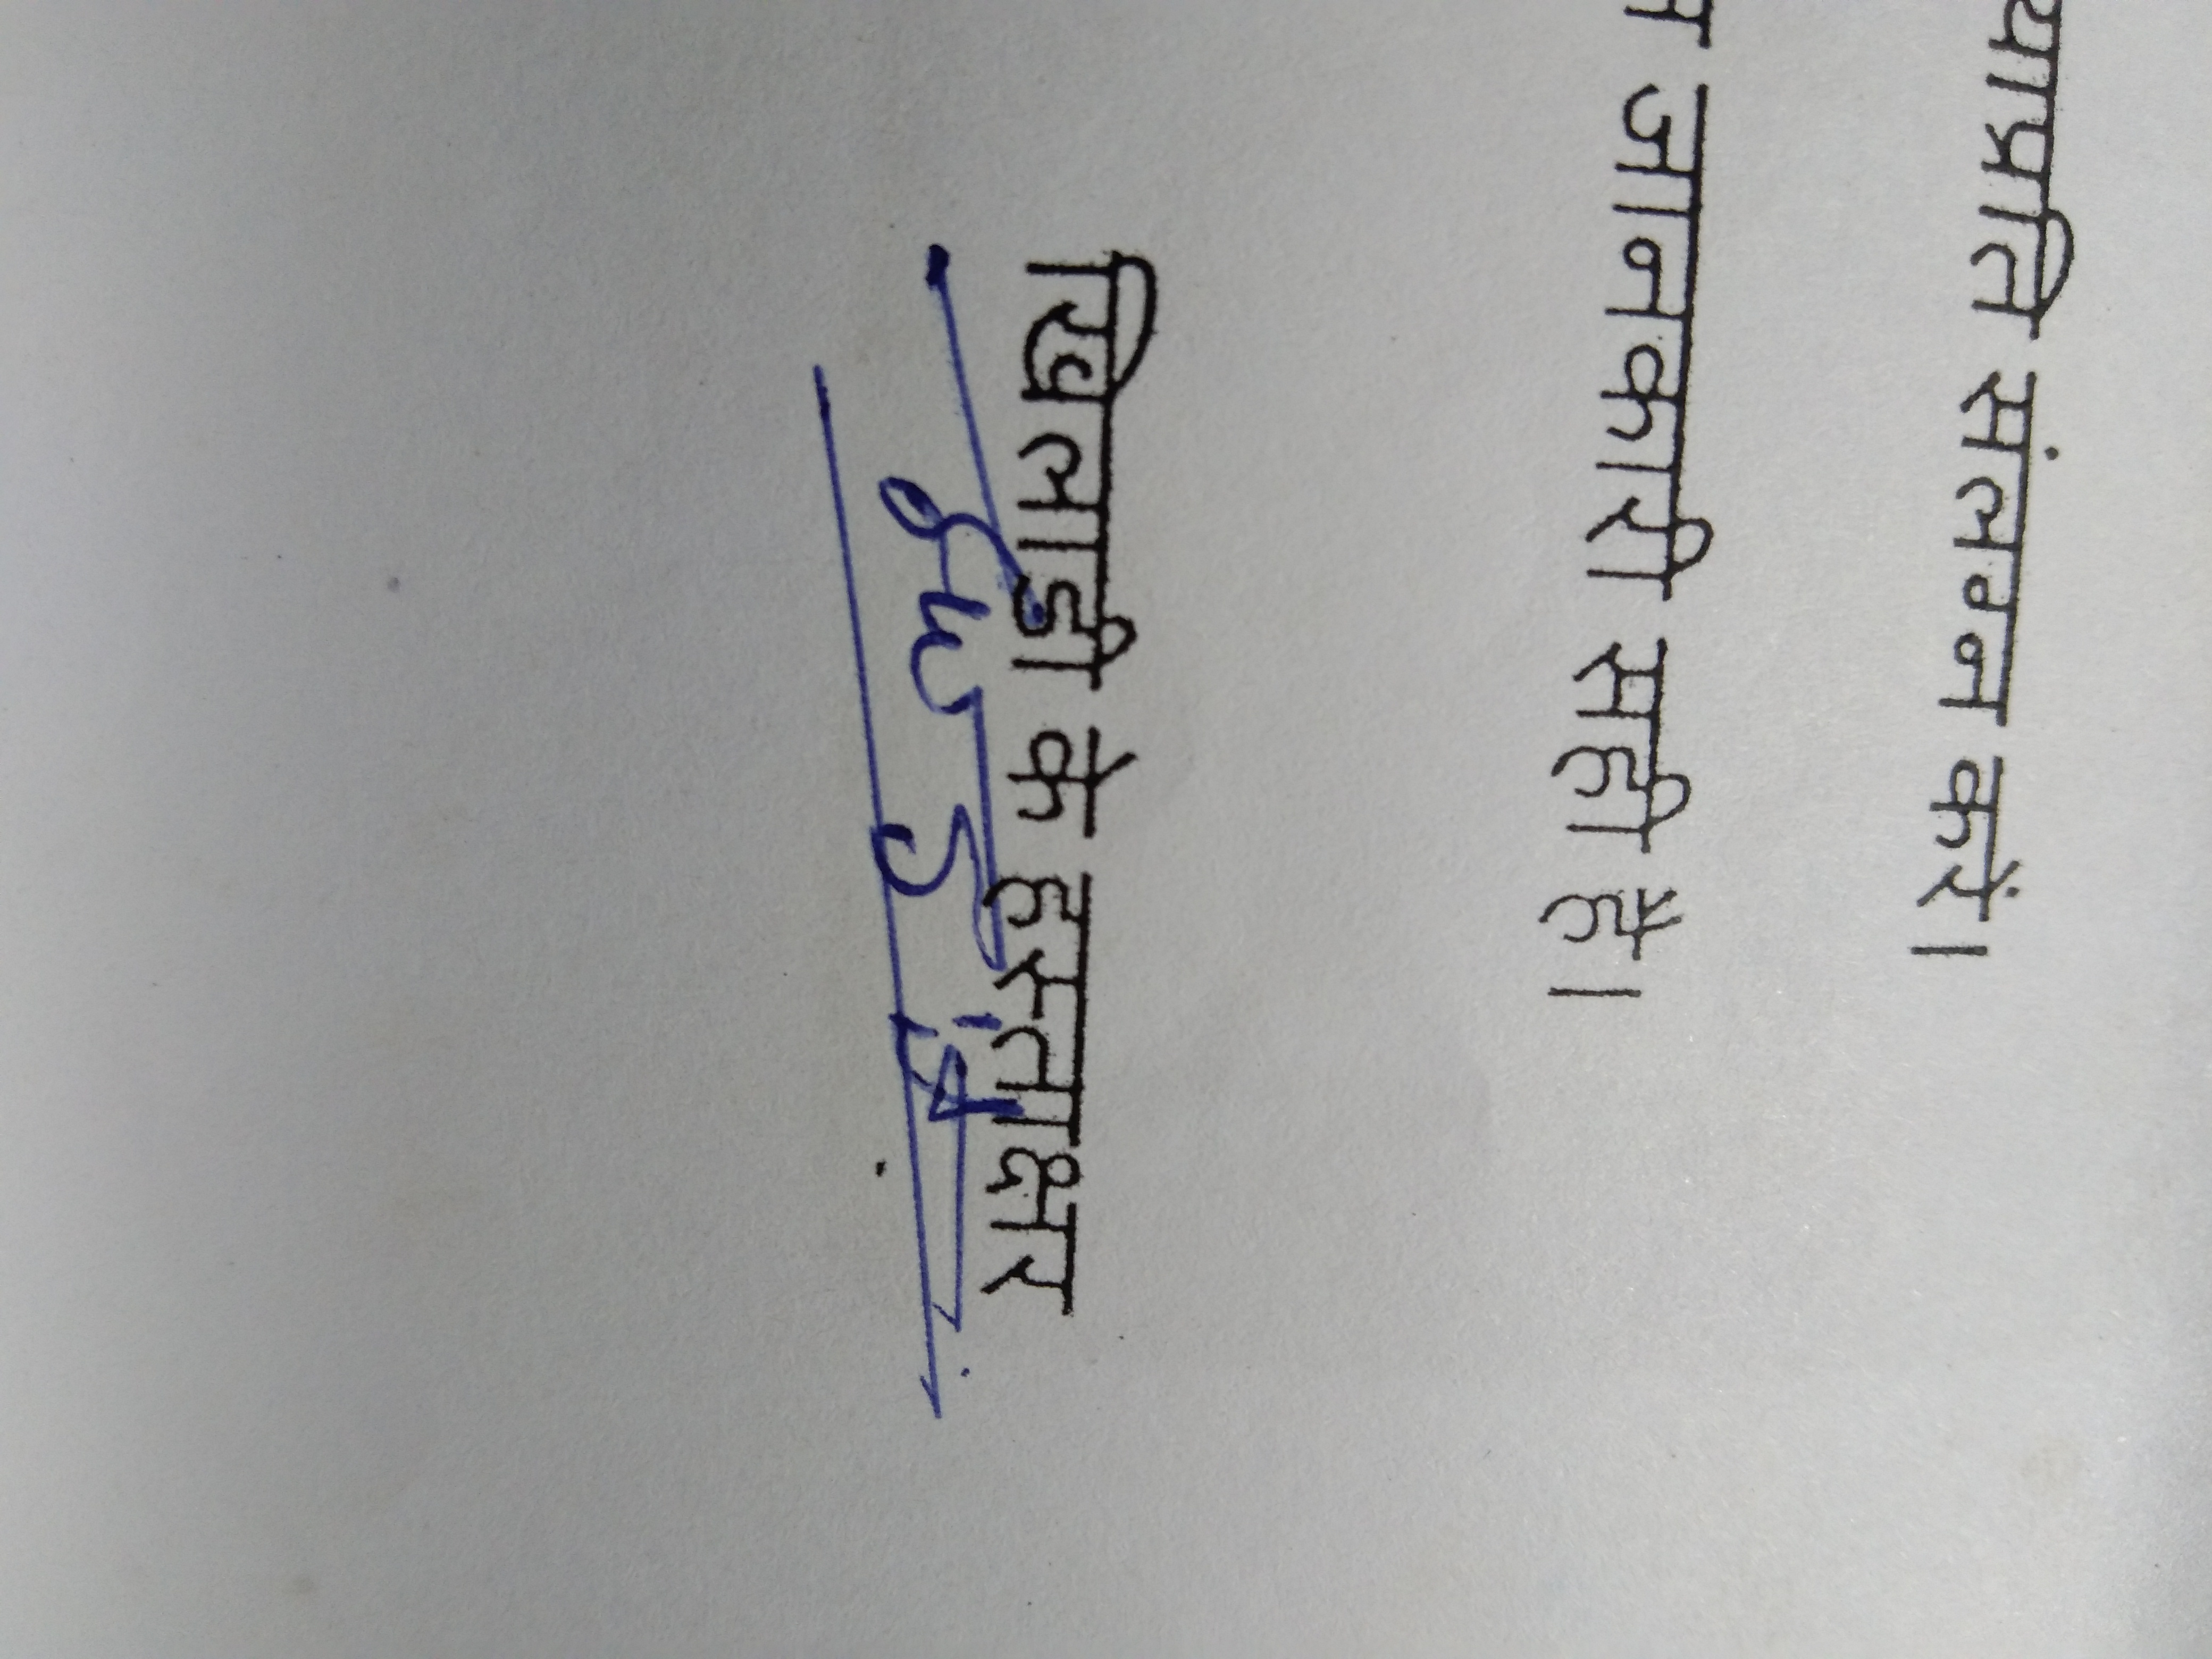 याप्रति संलग्न करें।
जानकारी सही है।
खिलाडी के हस्ताक्षर